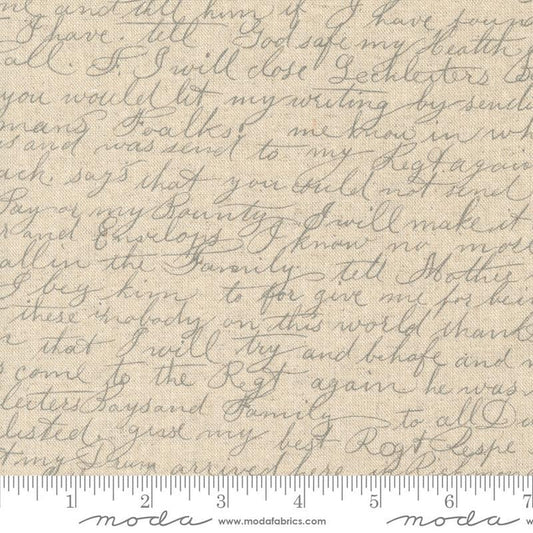 me and tell him if I have foun
I have. tell God safe my Health
all. F. I will close Lechleiters
you would let my writing by sendi
mans Foalks. me know in wh
is and was send to my Regt. again
ach. says that you could not send
Pay or my Bounty I will make it
r and Envelops I know no mor
all in the Family tell Mother
I beg him to for give me for bein
these nobody on this world thank
n that I will try and behafe and
s come to the Regt again he was
leiters Pays and Family to all D
listed. give my best Regt Respe
t my Drum arrived here in
1 2 3 4 5 6 7
moda www.modafabrics.com moda